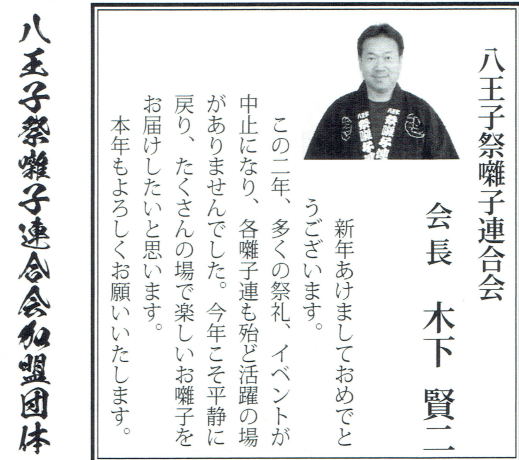 八王子祭囃子連合会
会長　木下　賢二
新年あけましておめでと
うございます。
この二年、多くの祭礼、イベントが
中止になり、各囃子連も殆ど活躍の場
がありませんでした。今年こそ平静に
戻り、たくさんの場で楽しいお囃子を
お届けしたいと思います。
本年もよろしくお願いいたします。
八王子祭囃子連合会加盟団体